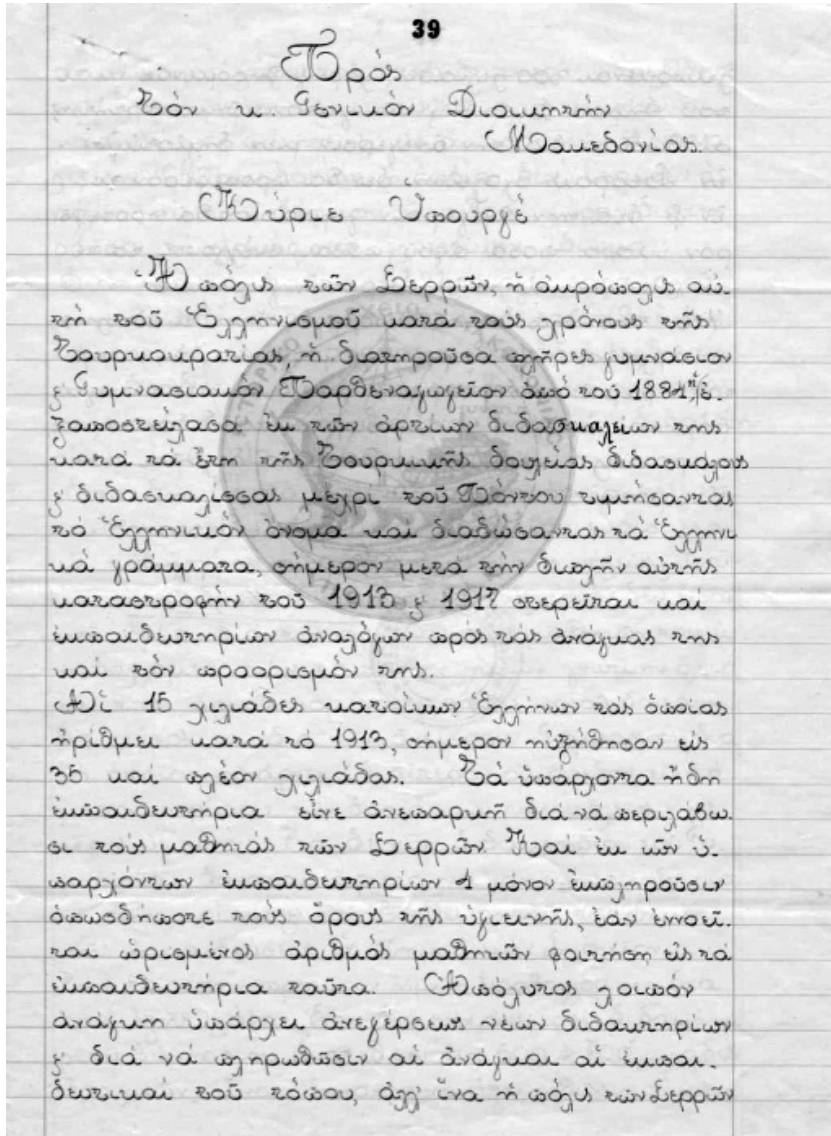 39
Πρός
Τόν κ. Γενικόν Διοικητήν
Μακεδονίας.
Κύριε Ὑπουργέ
Ἡ πόλις τῶν Σερρῶν, ἡ ἀκρόπολις αὐ-
τή τοῦ Ἑλληνισμοῦ κατά τούς χρόνους τῆς
Τουρκοκρατίας, ἡ διατηροῦσα πλῆρες γυμνάσιον
ϗ Γυμνασιακόν Παρθεναγωγεῖον ἀπό τοῦ 1881 ἡ ἐ-
ξαποστείλασα ἐκ τῶν ἀρτίων διδασκαλείων της
κατά τά ἔτη τῆς Τουρκικῆς δουλείας διδασκάλους
ϗ διδασκαλίσσας μέχρι τοῦ Πόντου τιμήσαντας
τό Ἑλληνικόν ὄνομα καί διαδώσαντας τά Ἑλληνι
κά γράμματα, σήμερον μετά τήν διπλῆν αὐτῆς
καταστροφήν τοῦ 1913 ϗ 1917 στερεῖται καί
ἐκπαιδευτηρίων ἀναλόγων πρός τάς ἀνάγκας της
καί τόν προορισμόν της.
Αἱ 15 χιλιάδες κατοίκων Ἑλλήνων τάς ὁποίας
ἠρίθμει κατά τό 1913, σήμερον ηὐξήθησαν εἰς
35 καί πλέον χιλιάδας. Τά ὑπάρχοντα ἤδη
ἐκπαιδευτήρια εἶνε ἀνεπαρκῆ διά νά περιλάβω-
σι τούς μαθητάς τῶν Σερρῶν. Καί ἐκ τῶν ὑ-
παρχόντων ἐκπαιδευτηρίων 1 μόνον ἐκπληροῦσιν
ὁπωσδήποτε τούς ὅρους τῆς ὑγιεινῆς, ἐάν ἐννοεῖ-
ται ὡρισμένος ἀριθμός μαθητῶν φοιτήσῃ εἰς τά
ἐκπαιδευτήρια ταῦτα. Ἀπόλυτος λοιπόν
ἀνάγκη ὑπάρχει ἀνεγέρσεως νέων διδακτηρίων
ϗ διά νά πληρωθῶσιν αἱ ἀνάγκαι αἱ ἐκπαι-
δευτικαί τοῦ τόπου, ἀλλ' ἵνα ἡ πόλις τῶν Σερρῶν